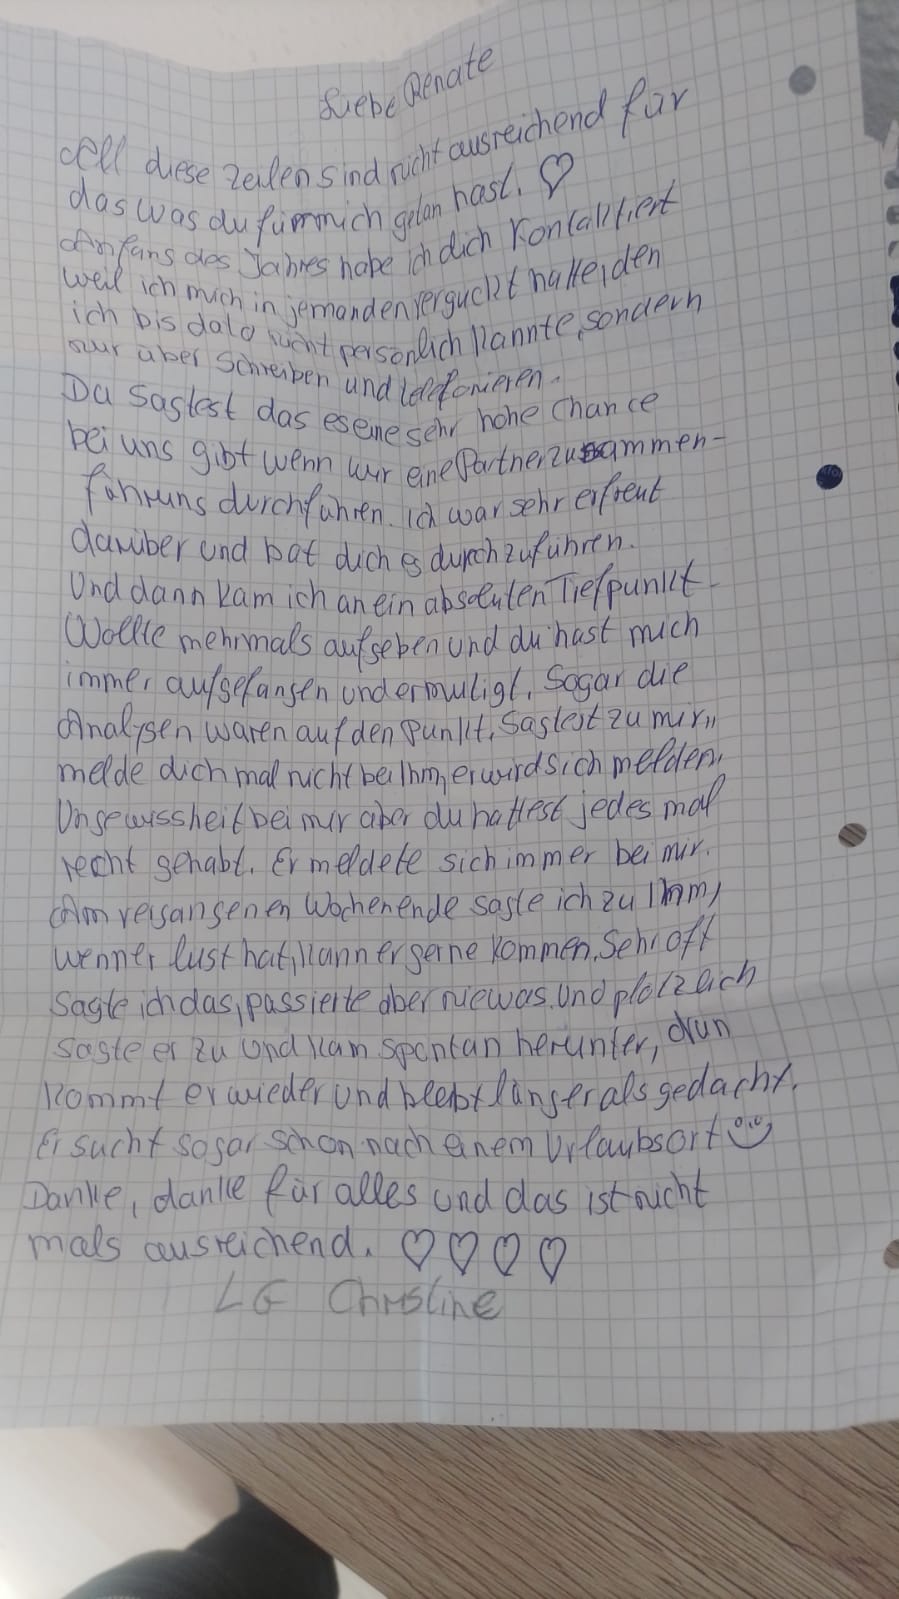 Liebe Renate
All diese Zeilen sind nicht ausreichend für
das was du für mich getan hast. ♡
Anfang des Jahres habe ich dich Kontaktiert
weil ich mich in jemanden verguckt hatte, den
ich bis dato nicht persönlich kannte, sondern
nur über Schreiben und telefonieren.
Du Sagtest das es eine sehr hohe Chance
bei uns gibt wenn wir eine Partnerzusammen-
führung durchführen. Ich war sehr erfreut
darüber und bat dich es durchzuführen.
Und dann kam ich an ein absoluten Tiefpunkt.
Wollte mehrmals aufgeben und du hast mich
immer aufgefangen und ermutigt. Sogar die
Analysen waren auf den Punkt. Sagtest zu mir,,
melde dich mal nicht bei Ihm, er wird sich melden.
Ungewissheit bei mir aber du hattest jedes mal
recht gehabt. Er meldete sich immer bei mir.
Am vergangenen Wochenende sagte ich zu Ihm,
wenn er lust hat, kann er gerne kommen. Sehr oft
sagte ich das, passierte aber nie was. Und plötzlich
sagte er zu und kam spontan herunter, nun
kommt er wieder und bleibt länger als gedacht.
Er sucht sogar schon nach einem Urlaubsort ☺
Danke, danke für alles und das ist nicht
mals ausreichend. ♡♡♡♡
LG Christine